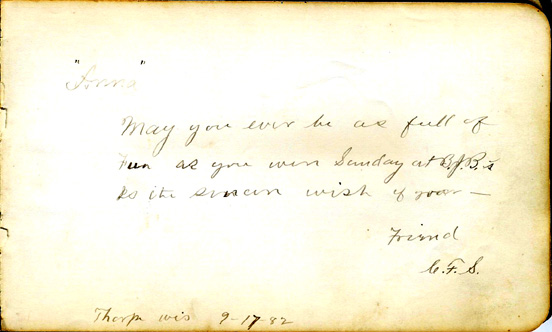 "Anna"
May you ever be as full of
Fun as you wer Sunday at B.J.B.'s
Is the sincere wish of your —
Friend
C.F.S.
Thorp Wis 9-17-82